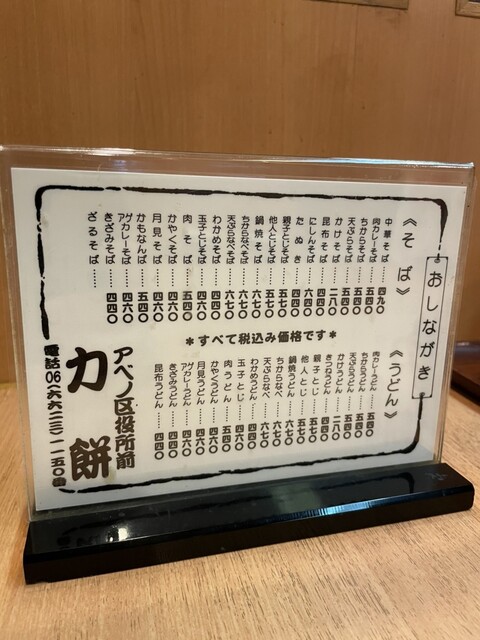 おしながき
《そば》
中華そば……四九〇
肉カレーそば……五四〇
ちからそば……五四〇
天ぷらそば……五四〇
かけそば……二八〇
昆布そば……四四〇
にしんそば……六四〇
たぬき……四四〇
親子とじそば……五四〇
他人とじそば……五七〇
鍋焼そば……六七〇
ちからなべそば……六七〇
天ぷらなべそば……六七〇
わかめそば……四四〇
玉子とじそば……四六〇
肉そば……五四〇
かやくそば……四六〇
月見そば……四六〇
かもなんば……五四〇
アゲカレーそば……四六〇
きざみそば……四四〇
ざるそば……四四〇
＊すべて税込み価格です＊
《うどん》
肉カレーうどん……五四〇
ちからうどん……五四〇
天ぷらうどん……五四〇
かけうどん……二八〇
きつねうどん……四四〇
親子とじ……五四〇
他人とじ……五七〇
鍋焼うどん……六七〇
ちからなべ……六七〇
天ぷらなべ……六七〇
わかめうどん……四四〇
玉子とじ……四六〇
肉うどん……五四〇
かやくうどん……四六〇
月見うどん……四六〇
アゲカレーうどん……四六〇
きざみうどん……四四〇
昆布うどん……四四〇
アベノ区役所前
力餅
電話06(六六二三)一一五〇番